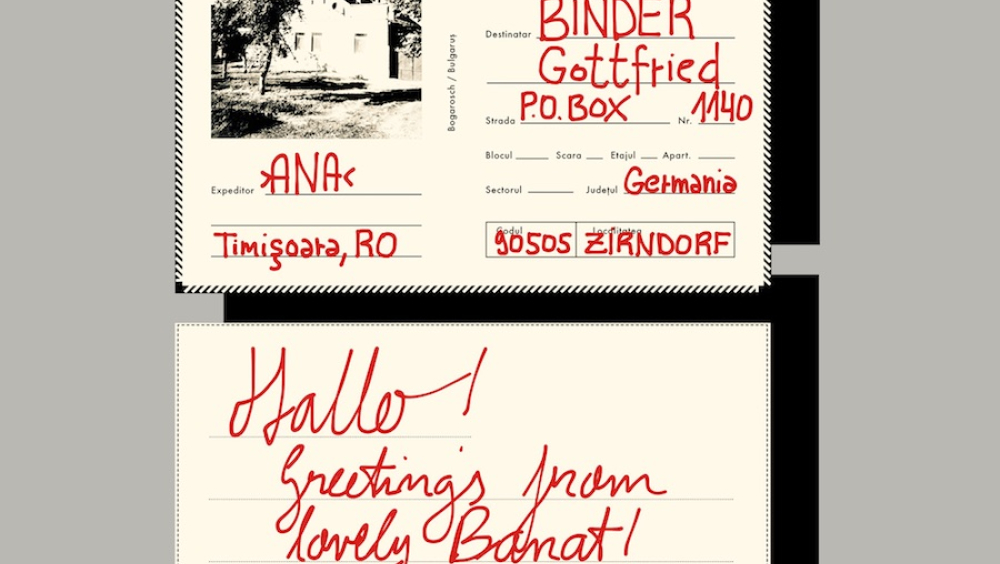 Bogarosch / Bulgaruș
Expeditor >ANA<
Timișoara, RO
Destinatar BINDER
Gottfried
Strada P.O. BOX Nr. 1140
Blocul Scara Etajul Apart.
Sectorul Județul Germania
Codul Localitatea
90505 ZIRNDORF
Hallo!
Greetings from
lovely Banat!